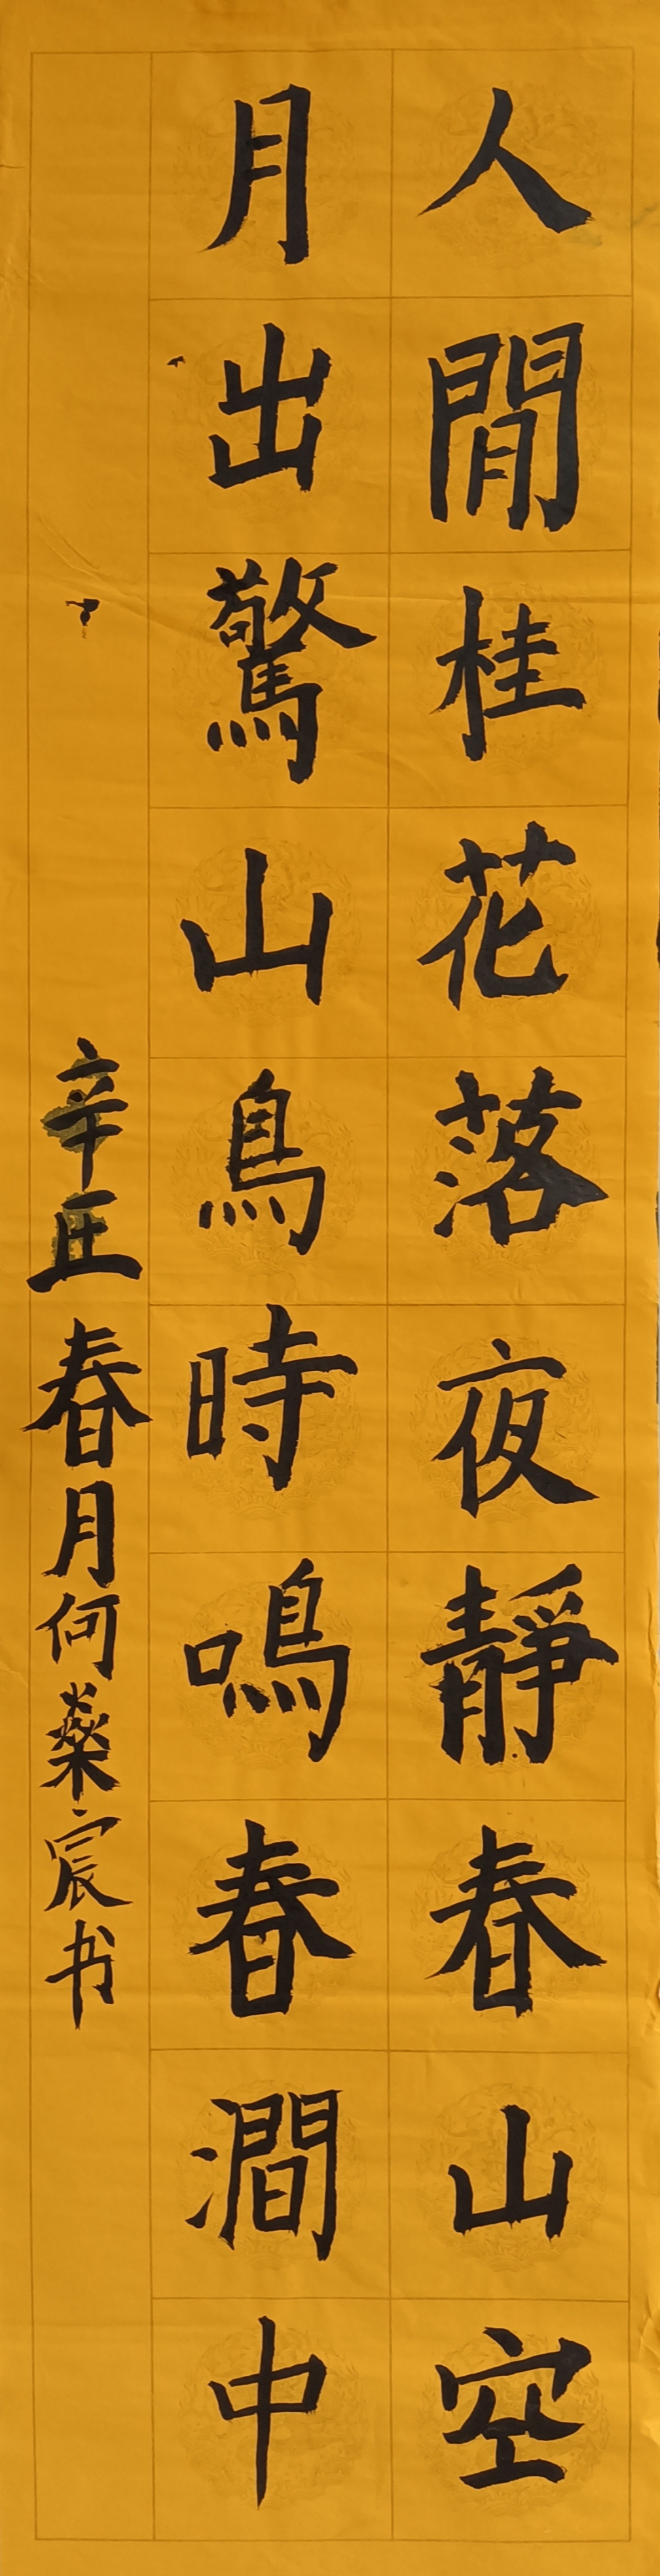 人閒桂花落夜靜春山空
月出驚山鳥時鳴春澗中
辛丑春月何燊宸书